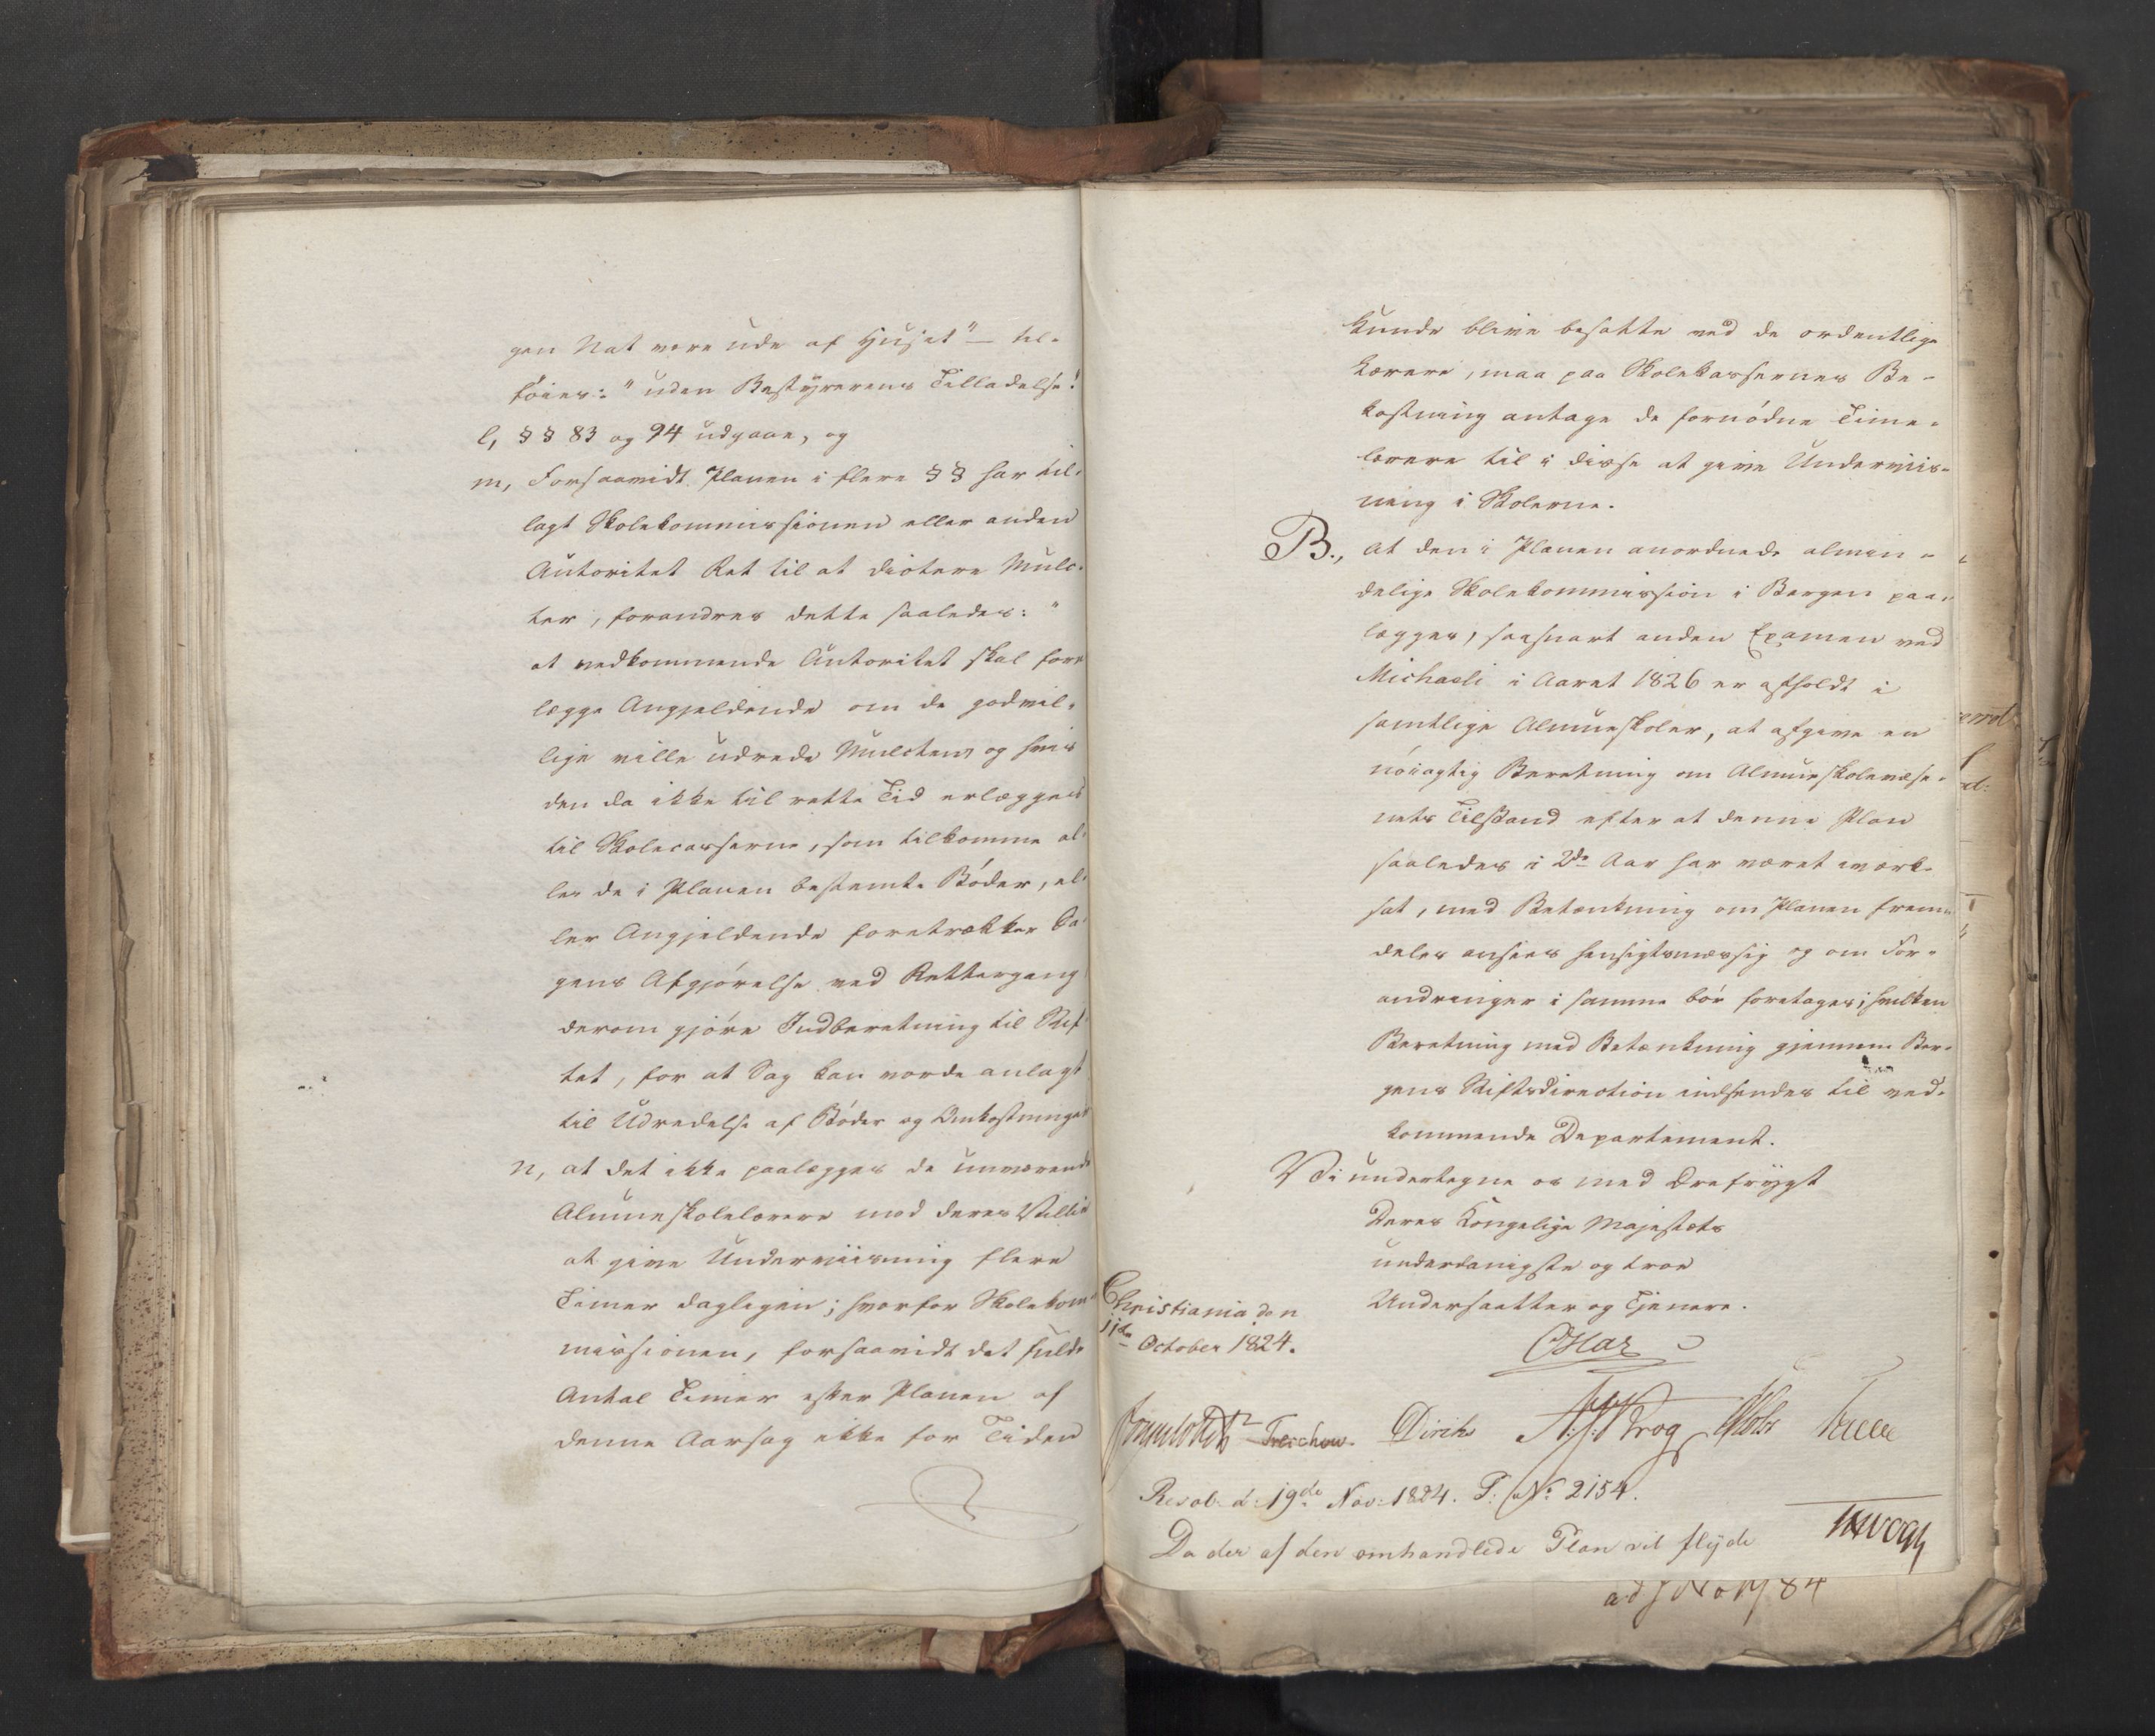 gen Nat være ude af Huset" — til-
föies: "uden Bestyrerens Tilladelse"
l, §§ 83 og 94 udgaae, og
m, Forsaavidt Planen i flere §§ har til-
lagt Skolekommissionen eller anden
Autoritet Ret til at dictere Mulc-
ter, forandres dette saaledes: "
at vedkommende Autoritet skal fore-
lægge Angjeldende om de godvil-
lige ville udrede Mulcten, og hvis
den da ikke til rette Tid erlægges
til Skolecasserne, som tilkomme al-
le de i Planen bestemte Böder, el-
ler Angjeldende foretrækker Sa-
gens Afgjörelse ved Rettergang
derom gjöre Indberetning til Stif-
tet, for at Sag kan vorde anlagt
til Udredelse af Böder og Omkostninger
n, at det ikke paalægges de nuværende
Almueskolelærere mod deres Villie
at give Underviisning flere
Timer daglegen; hvorfor Skolekom-
missionen, forsaavidt det fulde
Antal Timer efter Planen af
denne Aarsag ikke for Tiden
kunde blive besatte ved de ordentlige
Lærere, maa paa Skolekassernes Be-
kostning antage de fornödne Time-
lærere til i disse at give Underviis-
ning i Skolerne.
B., At den i Planen anordnede almin-
delige Skolekommission i Bergen paa-
lægges, saasnart anden Examen ved
Michaeli i Aaret 1826 er afholdt i
samtlige Almueskoler, at afgive en
nöiagtig Beretning om Almueskolevæse-
nets Tilstand efter at denne Plan
saaledes i 2de Aar har været iværk-
sat, med Betænkning om Planen frem-
deles ansees hensigtsmæssig og om For-
andringer i samme bör foretages; hvilken
Beretning med Betænkning gjennem Ber-
gens Stiftsdirection indsendes til ved-
kommende Departement.
Vi undertegne os med Ærefrygt
Deres Kongelige Majestæts
underdanigste og troe
Undersaatter og Tjenere.
Christiania den
11te October 1824.
Oscar
Sommerhielm Treschow. Diriks Krog Holst Fasting
Resol: d: 19de Nov: 1824. P: No 2154.
Da der af den omhandlede Plan vil flyde
JHVogt